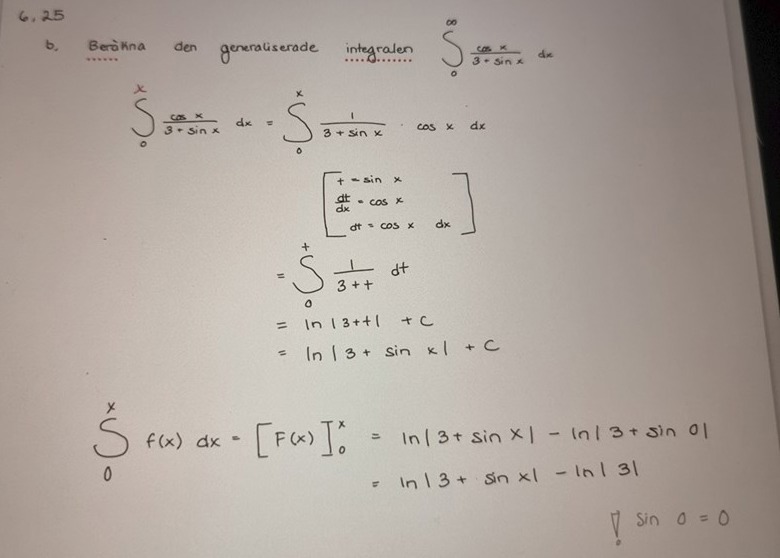 6.25
b. Beräkna den generaliserade integralen ∫₀^∞ cos x / (3 + sin x) dx
∫₀^x cos x / (3 + sin x) dx = ∫₀^x 1 / (3 + sin x) · cos x dx
[ t = sin x
dt/dx = cos x
dt = cos x dx ]
= ∫₀^t 1 / (3 + t) dt
= ln |3+t| + C
= ln |3 + sin x| + C
∫₀^x f(x) dx = [F(x)]₀^x = ln|3 + sin x| − ln|3 + sin 0|
= ln |3 + sin x| − ln |3|
! sin 0 = 0